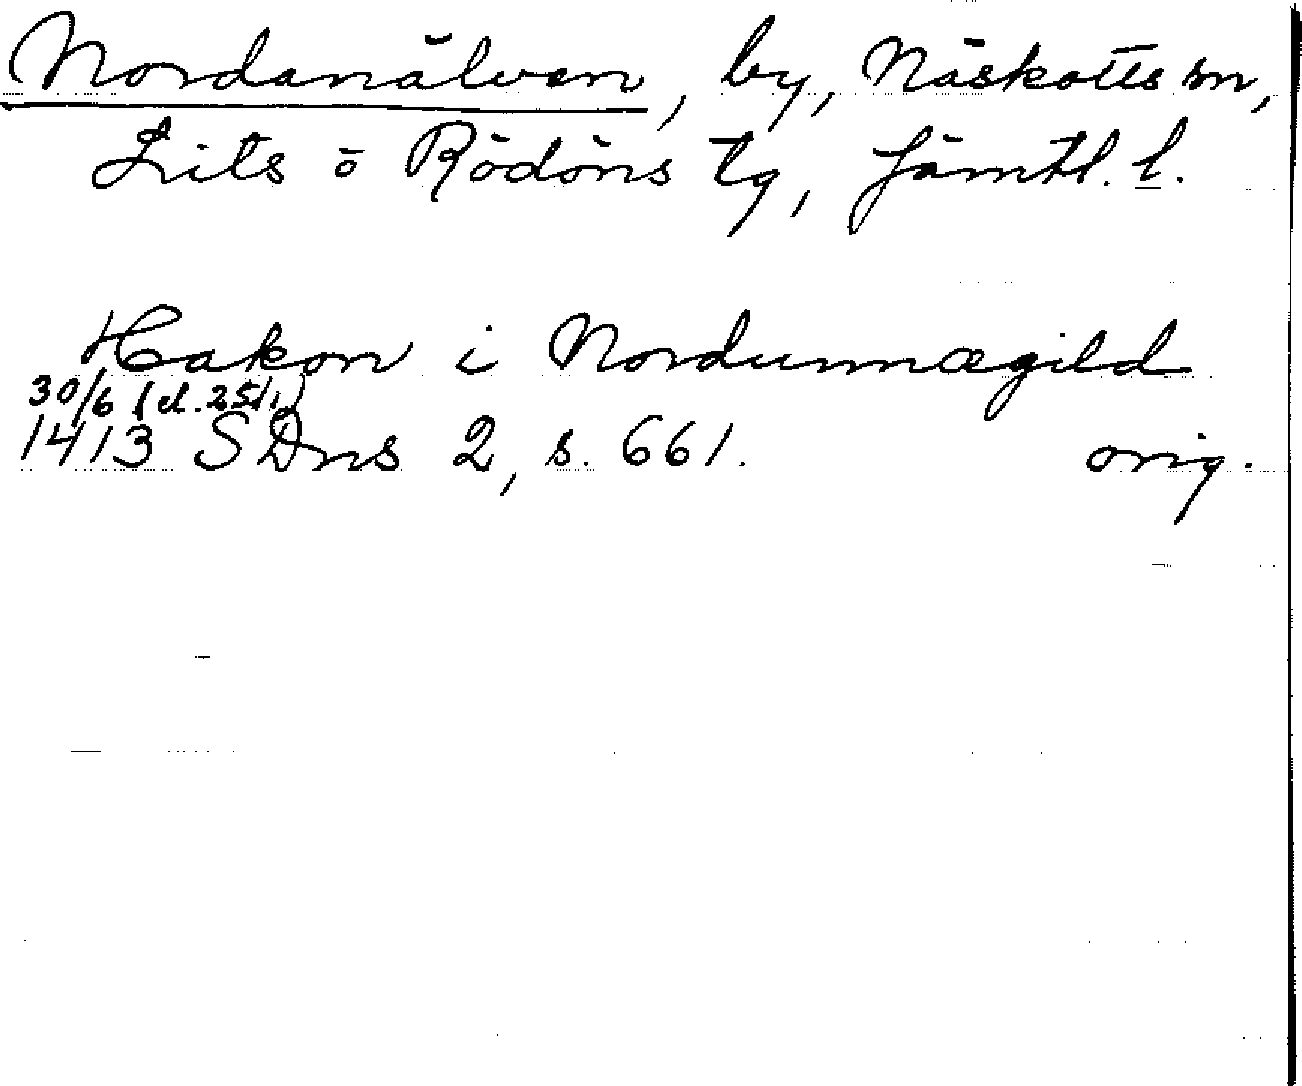 Nordanälven, by, Näskotts sn,
Lits o Rödöns tg, Jämtl. l.
Hakon i Nordunnægild
30/6 (el. 25/1)
1413 SDns 2, s. 661. orig.